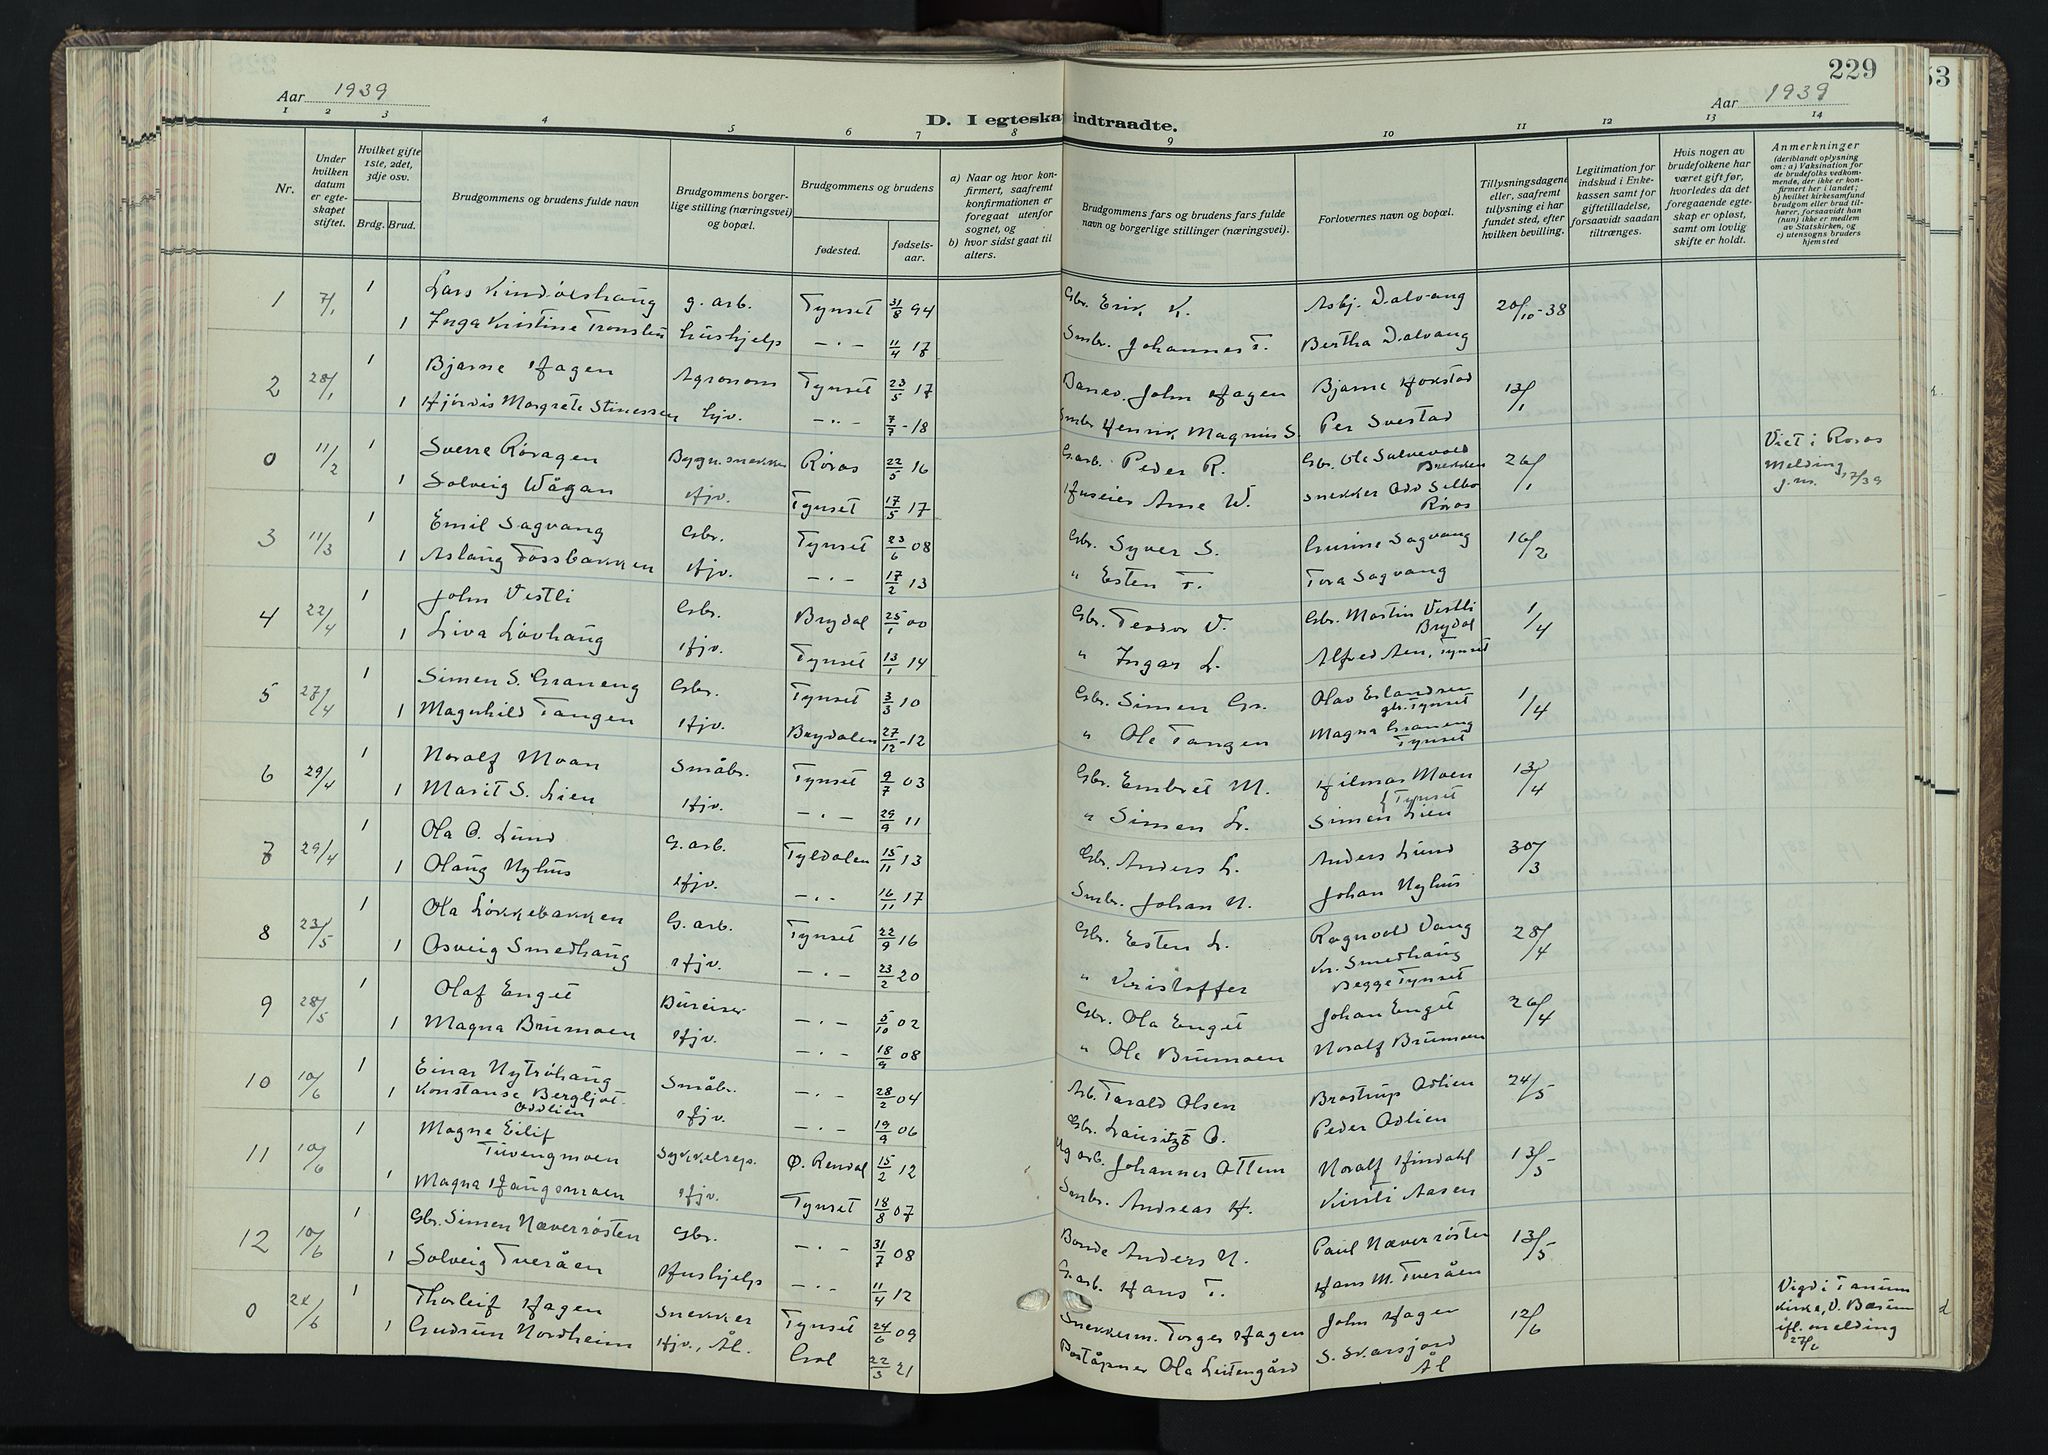 229
53
Aar 1939
Aar 1939
D. I egteskap indtraadte.
1 2 3 4 5 6 7 8 9 10 11 12 13 14
Nr.
Under hvilken datum er egteskapet stiftet.
Hvilket gifte 1ste, 2det, 3dje osv.
Brdg. Brud.
Brudgommens og brudens fulde navn
Brudgommens borgerlige stilling (næringsvei) og bopæl.
Brudgommens og brudens
fødested.
fødselsaar.
a) Naar og hvor konfirmert, saafremt konfirmationen er foregaat utenfor sognet, og
b) hvor sidst gaat til alters.
Brudgommens fars og brudens fars fulde navn og borgerlige stillinger (næringsvei).
Forlovernes navn og bopæl.
Tillysningsdagene eller, saafremt tillysning ei har fundet sted, efter hvilken bevilling.
Legitimation for indskud i Enkekassen samt for giftetilladelse, forsaavidt saadan tiltrænges.
Hvis nogen av brudefolkene har været gift før, hvorledes da det foregaaende egteskap er opløst, samt om lovlig skifte er holdt.
Anmerkninger
(deriblandt oplysning om: a) Vaksination for de brudefolks vedkommende, der ikke er konfirmert her i landet; b) hvilket kirkesamfund brudgom eller brud tilhører, forsaavidt han (hun) ikke er medlem av Statskirken, og c) utensogns bruders hjemsted
1 7/1 1 Lars Kindølshaug g. arb. Tynset 31/8 94 Gbr. Erik K. Asbj. Dalvang 20/10-38
1 Inga Kristine Tronslien hushjelp —"— 11/4 17 Smbr. Johannes T. Bertha Dalvang
2 28/1 1 Bjarne Hagen Agronom Tynset 23/5 17 Banev. John Hagen Bjarne Hokstad 13/1
1 Hjørdis Margrete Stinessen hjv. —"— 7/7-18 Smbr Henrik Magnus S. Per Svestad
0 11/2 1 Sverre Røragen Bygn.snekker Røros 22/5 16 G.arb. Peder R. Gbr. Ole Sulvevold Brekken 26/1 Viet i Røros
1 Solveig Wågan Hjv. Tynset 17/5 17 Huseier Arne W. Snekker Odd Selbo Røros Melding 17/39
3 11/3 1 Emil Sagvang Gbr. Tynset 23/6 08 Gbr. Syver S. Gurine Sagvang 16/2
1 Aslaug Fossbakken Hjv. —"— 17/2 13 " Esten F. Tora Sagvang
4 22/4 1 John Vestli Gbr. Brydal 25/1 00 Gbr. Teodor V. Gbr. Martin Vestli Brydal 1/4
1 Liva Løvhaug Hjv. Tynset 13/1 14 " Ingar L. Alfred Aen, Tynset
5 27/4 1 Simen S. Graneng Gbr. Tynset 3/3 10 Gbr. Simen Gr. Olav Erlandsen gbr. Tynset 1/4
1 Magnhild Tangen Hjv. Brydalen 27/12-12 " Ole Tangen Magna Graneng Tynset
6 29/4 1 Noralf Moan Småbr. Tynset 9/7 03 Gbr. Embret M. Hilmar Moen 13/4
1 Marit S. Lien Hjv. —"— 29/9 11 " Simen L. Simen Lien } Tynset
7 29/4 1 Ola O. Lund G.arb. Tyldalen 15/11 13 Gbr. Anders L. Anders Lund 30/3
1 Olaug Nyhus Hjv. —"— 16/11 17 Smbr. Johan N. Johan Nyhus
8 23/5 1 Ola Løkkebakken G. arb. Tynset 22/9 16 Gbr. Esten L. Ragnvald Vang 28/4
1 Osveig Smedhaug Hjv. —"— 23/2 20 " Kristoffer Kr. Smedhaug Begge Tynset
9 28/5 1 Olaf Enget Bureiser —"— 5/10 02 Gbr. Ola Enget Johan Enget 26/4
1 Magna Brumoen Hjv. —"— 18/9 08 " Ole Brumoen Noralf Brumoen
10 10/6 1 Einar Nytrøhaug Småbr. —"— 28/2 04 Arb. Tarald Olsen Brostrup Odlien 24/5
1 Konstanse Bergljot Oddlien Hjv. 19/9 06 Gbr. Lauritz O. Peder Odlien
11 10/6 1 Magne Eilif Tuvengmoen Sykkelrep. Ø. Rendal 15/2 12 Johannes Ottem Noralf Hindahl 13/5
1 Magna Haugsmoen Hjv. Tynset 18/8 07 Smbr. Andreas H. Kirsti Aasen
12 10/6 1 Gbr. Simen Næverrøsten Gbr. —"— 31/7 08 Bonde Anders N. Paul Næverrøsten 13/5
1 Solveig Tveråen Hushjelp —"— 11/4 12 G.arb. Hans T. Hans M. Tveråen
0 24/6 1 Thorleif Hagen Snekker Tynset 24/6 09 Snekkerm. Torger Hagen John Hagen 12/6 Vigd i Tanum kirke, V. Bærum
1 Gudrun Nordheim Hjv., Ål. Gol 22/3 21 Poståpner Ola Leitengård S. Svarsjord Ål ifl. melding 27/6